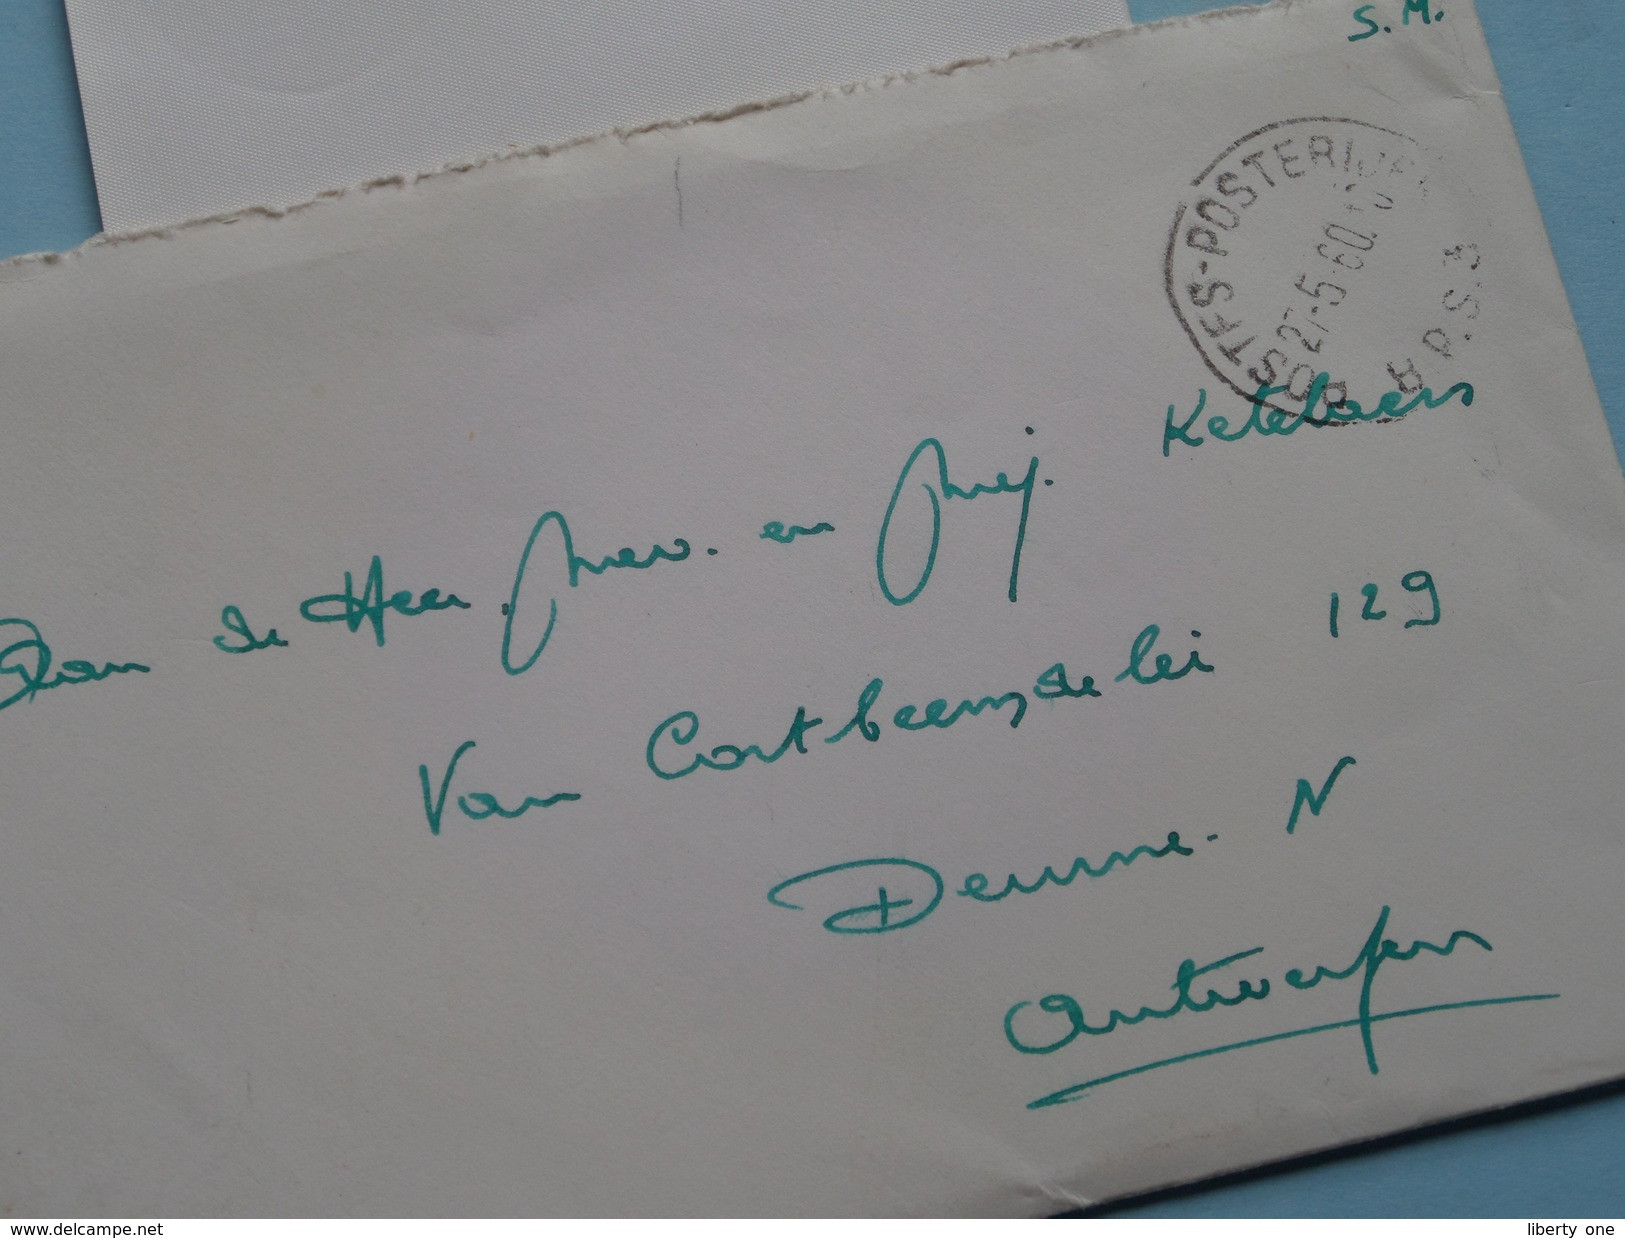 S.M.
POSTES-POSTERIJEN
27-5-60
B.P.S.3
Aan de Heer, Mevr. en Mej. Ketelaers
Van Cortbeemdelei 129
Deurne-N
Antwerpen
www.delcampe.net
liberty one